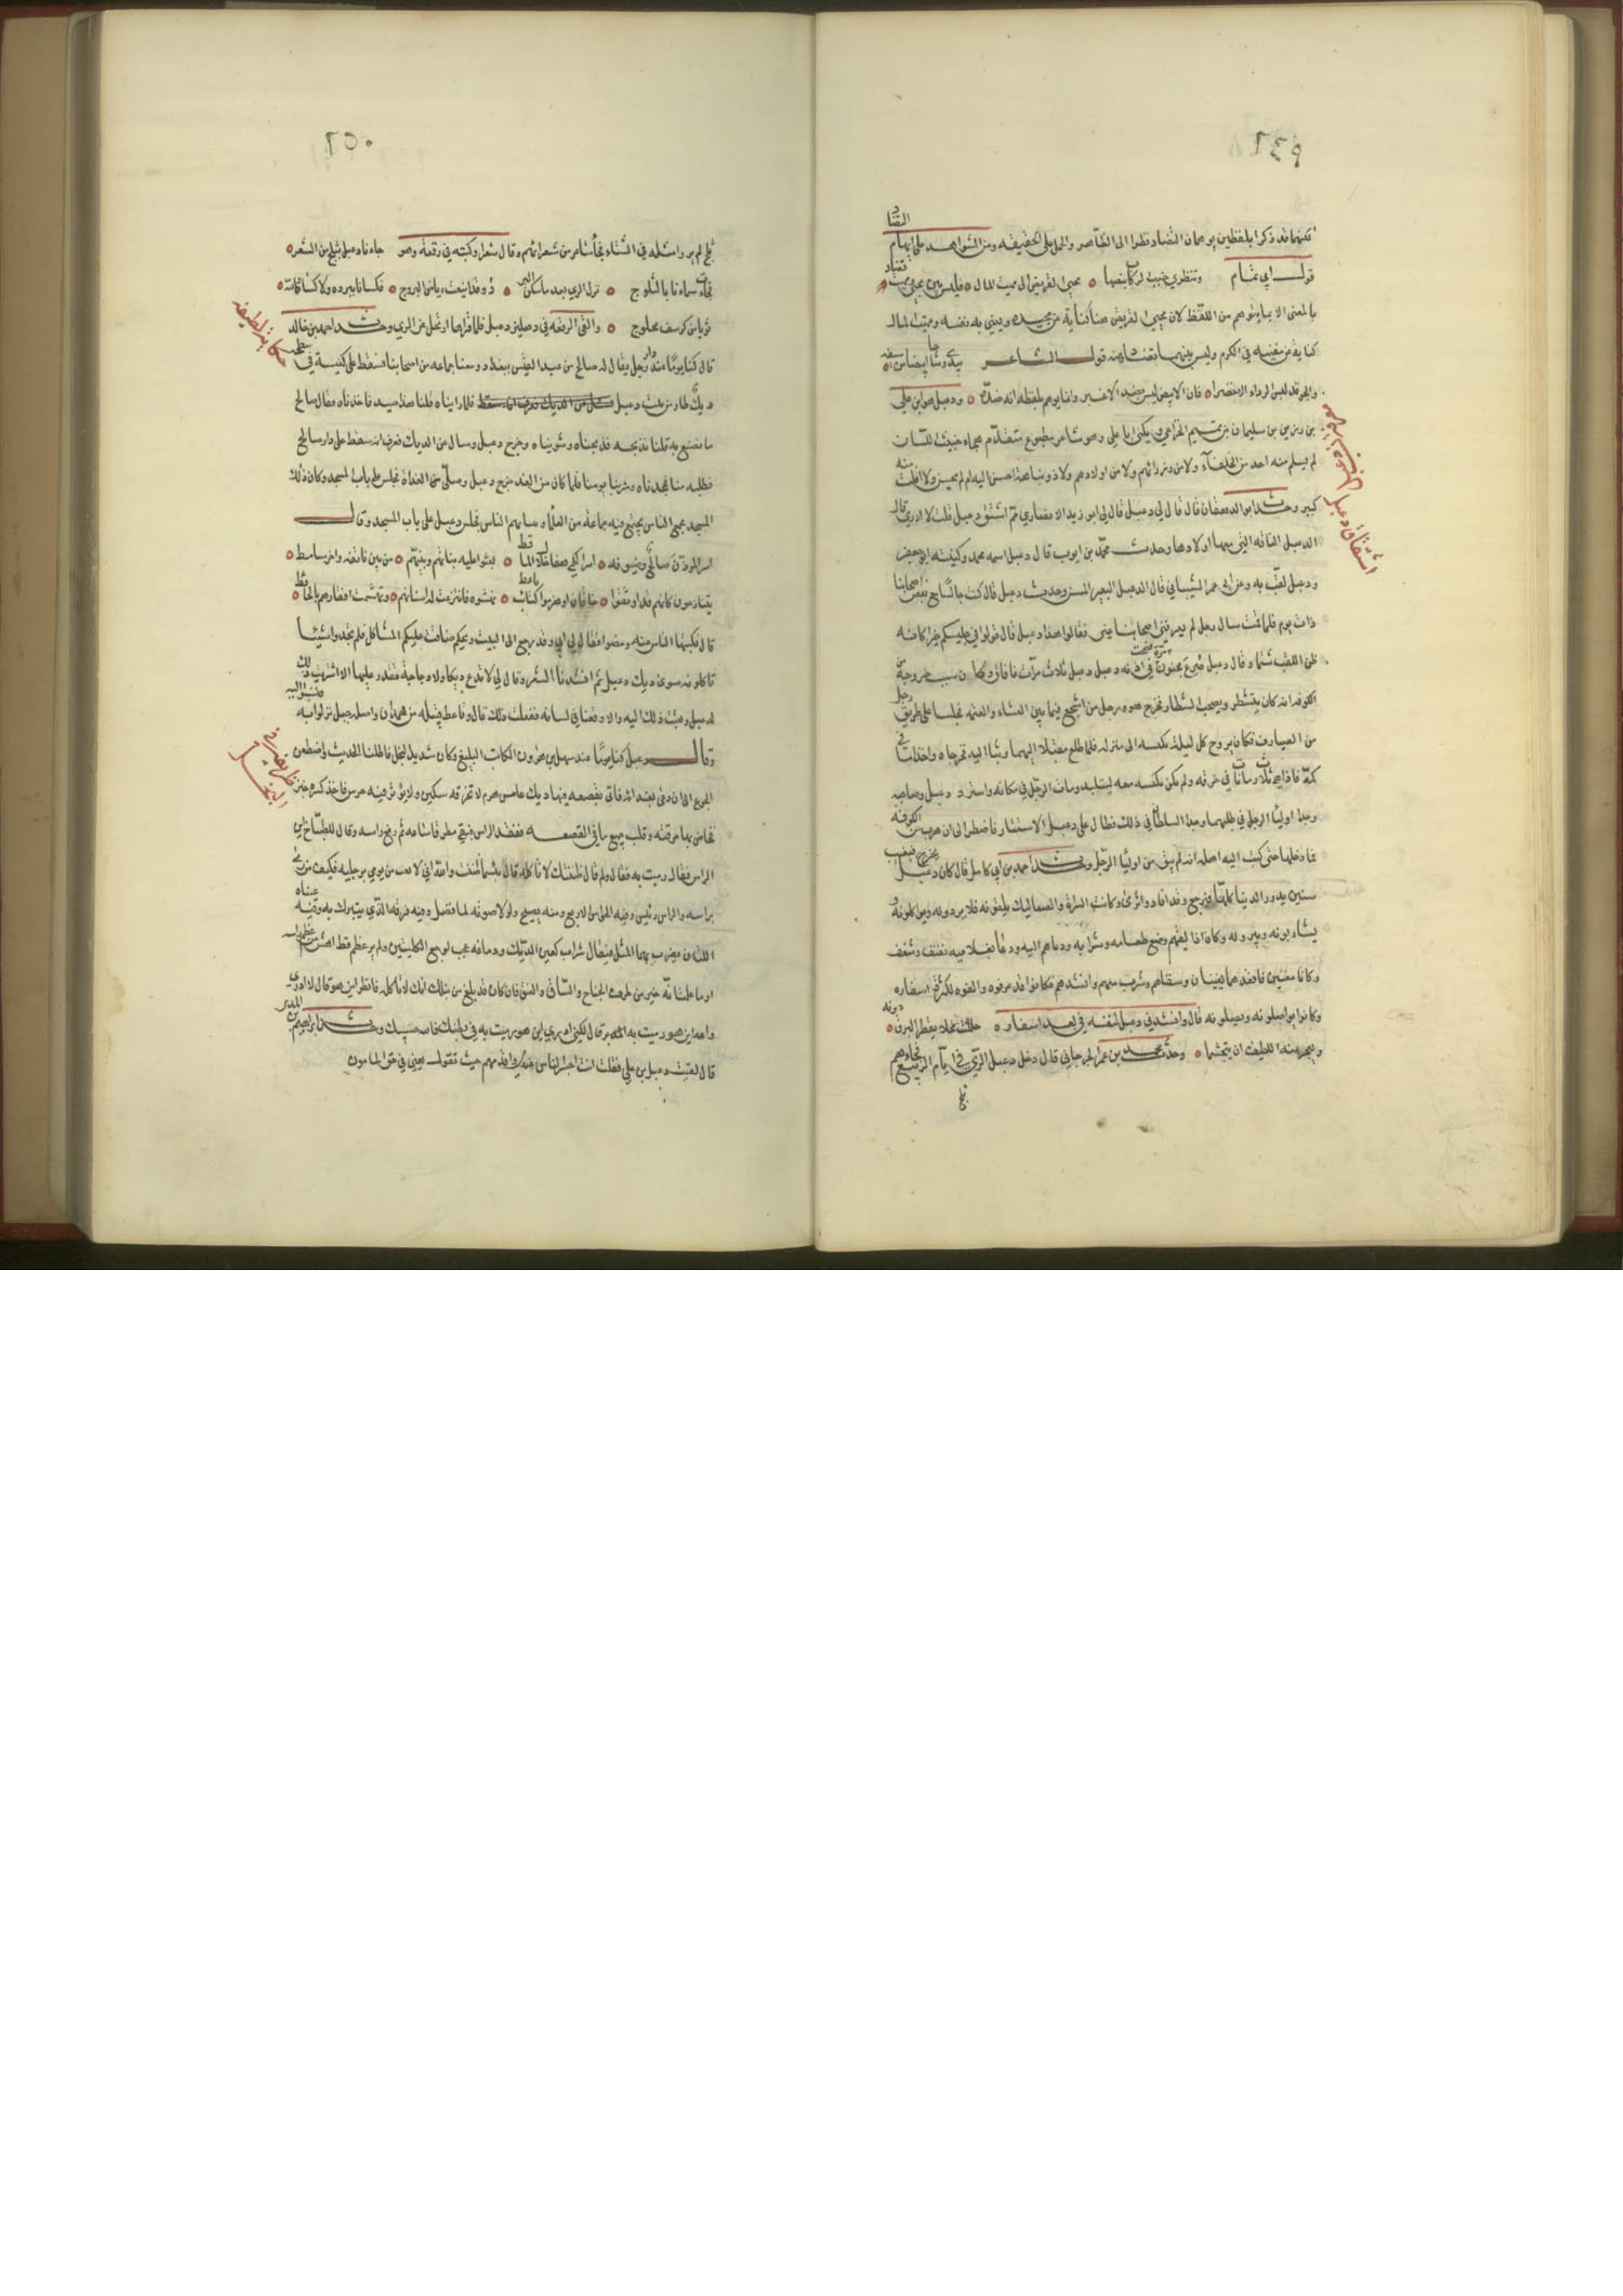 ٢٤٩
لكنهما قد ذكرا بلفظين يوهمان التضاد نظرا الى الظاهر والحمل على الحقيقة ومن الشواهد على ايهام التضاد
قول ابي تمام وتنظري خبب الركاب ينصها ٥ محيي القريض الى مميت المال ٥ فليس بين محيي ومميت تضاد
بالمعنى الا بما يتوهم من اللفظ لان محيي القريض هنا كناية عن مجيده ويعني به نفسه ومميت المال
كناية عن مفنيه في الكرم وليس بينهما تضاد ومنه قول الشاعر يبدي وشاحا ابيضا من سيفه ٥
والجو قد لبس الرداء الاغضرا ٥ فان الابيض ليس بضد الاغبر وانما يوهم بلفظه انه ضده ٥ ودعبل هو ابن علي
بن رزين بن سليمان بن تميم الخزاعي ويكنى ابا علي وهو شاعر مطبوع متقدم هجاء خبيث اللسان
لم يسلم منه احد من الخلفاء ولا من وزرائهم ولا من اولادهم ولا ذو نباهة احسن اليه او لم يحسن ولا افلت منه
كبير وحدث ابن الدهقان قال قال لي دعبل قال لي ابو زيد الانصاري مم اشتق دعبل قلت لا ادري قال
الدعبل الناقة التي معها اولادها وحدث محمد بن ايوب قال دعبل اسمه محمد وكنيته ابو جعفر
ودعبل لقب به وعن ابي عمرو الشيباني قال الدعبل البعير المسن وحدث دعبل قال كنت جالسا مع بعض اصحابنا
ذات يوم فلما قمت سال رجل لم يعرفني اصحابنا عني فقالوا هذا دعبل قال قولوا في جليسكم خيرا كانه
ظن اللقب شتما وقال دعبل صرع مجنون مرة فصحت في اذنه دعبل دعبل ثلاث مرات فافاق وكان سبب خروجه من
الكوفة انه كان يتشطر ويصحب الشطار فخرج هو ورجل من اشجع فيما بين العشاء والعتمة فجلسا على طريق رجل
من الصيارف فكان يروح كل ليلة بكيسه الى منزله فلما طلع مقبلا اليهما وثبا اليه فجرحاه واخذا ما في
كمه فاذا هي ثلاث رمانات في خرقة ولم يكن كيسه معه ليلتئذ ومات الرجل في مكانه واستتر دعبل وصاحبه
وجد اولياء الرجل في طلبهما وجد السلطان في ذلك فطال على دعبل الاستتار فاضطر الى ان هرب من الكوفة
فما دخلها حتى كتب اليه اهله انه لم يبق من اولياء الرجل وحدث احمد بن ابي كامل قال كان دعبل يخرج فيغيب
سنين يدور الدنيا كلها فيرجع وقد افاد واثرى وكانت الشراة والصعاليك يلقونه فلا يؤذونه ويواكلونه
ويشاربونه ويبرونه وكان اذا لقيهم وضع طعامه وشرابه ودعاهم اليه ودعا بغلاميه نفنف وشغف
وكانا مغنيين فاقعدهما يغنيان وسقاهم وشرب معهم وانشدهم فكانوا قد عرفوه والفوه لكثرة اسفاره
وكانوا يواصلونه ويصلونه قال وانشدني دعبل لنفسه في بعد اسفاره ٥ حللت محلا يقصر البرق دونه ٥
ويعجز عنه الطيف ان يتجشما ٥ وحدث محمد بن عمر الجرجاني قال دخل دعبل الري في ايام الربيع فجاءهم
ثلج
اشتقاق دعبل
٢٥٠
ثلج لم ير وا مثله في الشتاء فجا شاعر من شعرائهم وقال شعرا وكتبه في رقعة وهو جاءنا دعبل بثلج من الشعر ٥
فجادت سماءنا بالثلوج ٥ نزل الري بعد ما سكن البرد ٥ وقد اينعت رياض المروج ٥ فكسانا ببرده لا كساه الله ٥
ثوبا من كرسف محلوج ٥ والقى الرقعة في دهليز دعبل فلما قراها ارتحل عن الري وحدث احمد بن خالد
قال كنا يوما عند دار رجل يقال له صالح من عبد القيس ببغداد ومعنا جماعة من اصحابنا فسقط على كنيسة في سطحه
ديك طار من بيت دعبل فلما راينا ه قلنا هذا صيد فاخذناه فقال صالح
ما نصنع به قلنا نذبحه فذبحناه وشويناه وخرج دعبل وسال عن الديك فعرف انه سقط على دار صالح
فطلبه منا فجحدناه وشربنا يومنا فلما كان من الغد خرج دعبل وصلى الغداة ثم جلس على باب المسجد وكان ذلك
المسجد مجمع الناس يجتمع فيه جماعة من العلماء وينتابهم الناس فجلس دعبل على باب المسجد وقال
اسر المؤذن صالح وضيوفه ٥ اسر الكمي هفا خلال الماقط ٥ بعثوا عليه بناتهم وبنيهم ٥ من بين ناتفة واخر سامط ٥
يتنازعون كانهم قد اوثقوا ٥ خاقان او هزموا كتائب ناعط ٥ نهشوه فانتزعت له اسنانهم ٥ وتهشمت اقفاؤهم بالحائط ٥
قال فكتبها الناس عنه ومضوا فقال لي ابي وقد رجع الى البيت ويحكم ضاقت عليكم الماكل فلم تجدوا شيئا
تاكلونه سوى ديك دعبل ثم انشدنا الشعر وقال لي لا تدع ديكا ولا دجاجة تقدر عليها الا اشتريت ذلك
لدعبل وبعثت ذلك اليه والا وقعنا في لسانه ففعلت ذلك قال وناعط قبيلة من همدان واصله جبل نزلوا به فنسبوا اليه
وقال دعبل كنا يوما عند سهل بن هارون الكاتب البليغ وكان شديد البخل فاطلنا الحديث واضطره
الجوع الى ان دعى بغدائه فاتي بقصعة فيها ديك عاس هرم لا تخرقه سكين ولا يؤثر فيه ضرس فاخذ كسرة خبز
فخاض بها مرقته وقلب جميع ما في القصعة ففقد الراس فبقي مطرقا ساعة ثم رفع راسه وقال للطباخ اين
الراس فقال رميت به فقال ولم قال ظننتك لا تاكله قال بئسما ظننت والله اني لامقت من يرمي برجليه فكيف من يرمي
براسه والراس رئيس وفيه الحواس الاربع ومنه يصيح ولولا صوته لما فضل وفيه فرقه الذي يتبرك به وفيه عيناه
اللتان يضرب بهما المثل فيقال شراب كعين الديك ودماغه عجب لوجع الكليتين ولم ير عظم قط اهش من عظم راسه
اوما علمت انه خير من طرف الجناح والساق والعنق فان كان قد بلغ من نبلك انك لا تاكله فانظر اين هو قال لا ادري
والله اين هو رميت به قال لكني ادري اين هو رميت به في بطنك فالله حسبك وحدث ابراهيم بن المدبر
قال لقيت دعبل بن علي فقلت انت اجسر الناس عندي واقدمهم حيث تقول يعني في حق المامون
حكاية لطيفة